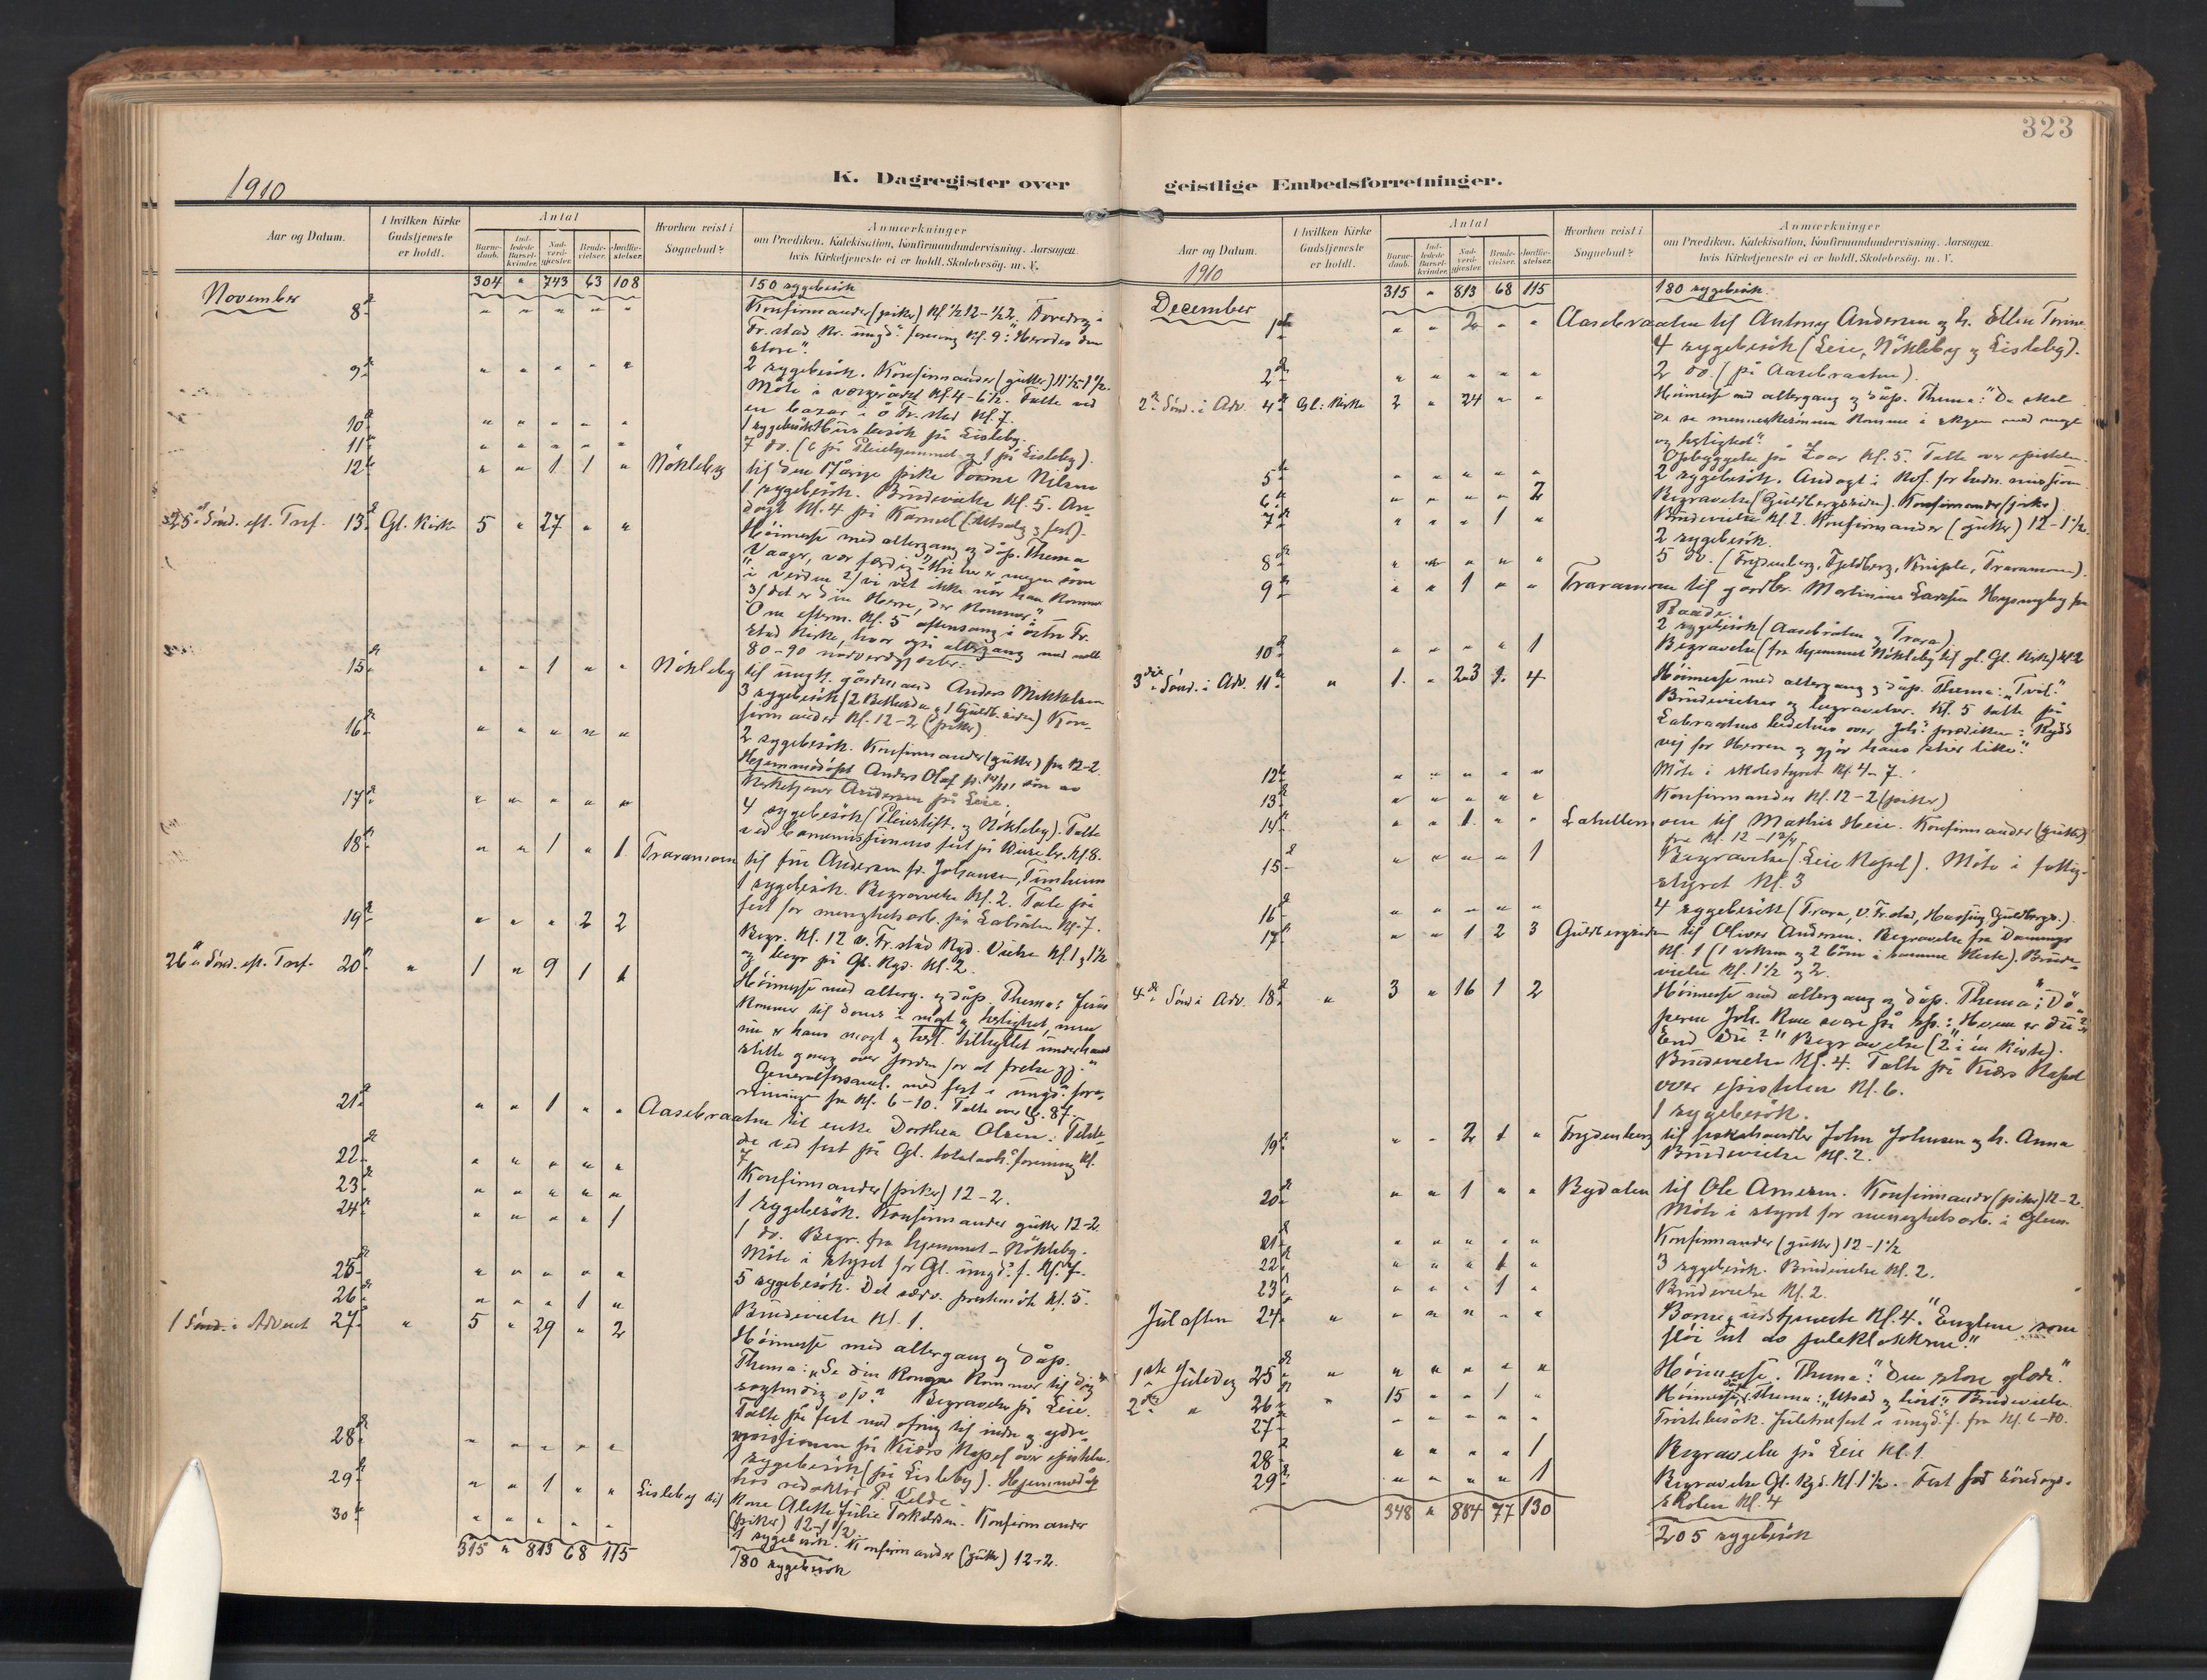 323
1910
K. Dagregister over
geistlige Embedsforretninger.
Aar og Datum.
I hvilken Kirke Gudstjeneste er holdt.
Antal
Barne-daab.
Ind-ledede Barsel-kvinder.
Nad-verd-gjæster.
Brude-vielser.
Jordfæ-stelser.
Hvorhen reist i Sognebud?
Anmærkninger
om Prædiken, Katekisation, Konfirmandundervisning, Aarsagen
hvis Kirketjeneste ei er holdt, Skolebesög, m. V.
304 " 743 63 108 150 sygebesök
November 8de " " " " " Konfirmander (piker) Kl. 1/2 12 - 1/2 2. Foredrag i
Fr.stad Kr. ungd. forening Kl. 9: "Herodes den
store".
9de " " " " " 2 sygebesök. Konfirmander (gutter) 11 1/2 - 1 1/2.
Möte i vergerådet Kl. 4 - 6 1/2. Talte ved
en bazar i ö. Fr.stad Kl. 7.
10de " " " " " 1 sygebesök. Husbesök på Lisleby.
11te " " " " " 7 do. (6 på Pleiehjemmet og 1 på Lisleby).
12te " " 1 1 " Nökleby til den årige pike Nilsen
1 sygebesök. Brudevielse Kl. 5. An-
dagt Kl. 4 på Karmel (Utsalg og fest).
25de Sönd. eft. Tref. 13de Gl. Kirke 5 " 27 " " Höimesse med altergang og dåp. Thema
Vaager, vær færdig
i verden 2/ vi vet ikke når han kommer
3/ det er din Herre, der kommer."
Om efterm. Kl. 5 aftensang i östre Fr.
stad Kirke, hvor også altergang med
80-90 nadverdgjester.
15de " " 1 " " Nökleby til ungk. gårdmand Anders Mikkelsen
3 sygebesök (2 og 1 Guldb.siden) Kon-
firmander Kl. 12-2 (piker).
16de " " " " " 2 sygebesök. Konfirmander (gutter) fra 12-2.
Hjemmedöpt Anders Olaf f. 14/11, sön av
Andersen på Leie.
17de " " " " " 4 sygebesök (Pleiestift. og Nökleby). Talte
ved fest på Kl. 8.
18de " " 1 " 1 Traramoen til fru Andersen f. Johansen,
1 sygebesök. Begravelse Kl. 2. Tale på
fest for menighetsarb. på Labråten Kl. 7.
19de " " " 2 2 Begr. Kl. 12 v. Fr.stad Kgd. Vielse Kl. 1 og 1 1/2
og begr. på Gl. Kgd. Kl. 2.
26de Sönd. eft. Tref. 20de " 1 " 9 1 1 Höimesse med alterg. og dåp. Thema: Jesus
kommer til doms i magt og herlighet, men
nu er hans magt og herl. tilhyllet under hans
stille gang over jorden for at frelse
Generalforsaml. med fest i ungd. fore-
ningen fra Kl. 6-10. Talte over Ps. 87.
21de " " 1 " " Aasebraaten til enke Dorthea Olsen. Talte
ved fest på Gl. totalavh. forening Kl.
7
22de " " " " " Konfirmander (piker) 12-2.
23de " " " " " 1 sygebesök. Konfirmander gutter 12-2
24de " " " " 1 1 do. Begr. fra hjemmet - Nökleby.
Möte i styret for Gl. ungd. f. Kl. 7.
25de " " " " " 5 sygebesök. Det sedv. prestemöte Kl. 5.
26de " " " 1 " Brudevielse Kl. 1.
1 Sönd. i Advent 27de " 5 " 29 " 2 Höimesse med altergang og dåp.
Thema: "Se din Konge kommer til dig
sagtmodig o/s." Begravelse på Leie.
Talte på fest med ofring til indre og ydre
missionen på Kiærs Kapel over epistelen.
28de " " " " " 1 sygebesök (på Lisleby). Hjemmedåp
hos redaktör P. Velde.
29de " " 1 " " Lisleby til Kone Alette Julie Torkelsen. Konfirmander
(piker) 12-1 1/2.
30te " " " " " 1 sygebesök. Konfirmander (gutter) 12-2.
315 " 813 68 115 180 sygebesök
Aar og Datum.
1910
I hvilken Kirke Gudstjeneste er holdt.
Antal
Barne-daab.
Ind-ledede Barsel-kvinder.
Nad-verd-gjæster.
Brude-vielser.
Jordfæ-stelser.
Hvorhen reist i Sognebud?
Anmærkninger
om Prædiken, Katekisation, Konfirmandundervisning, Aarsagen
hvis Kirketjeneste ei er holdt, Skolebesög, m. V.
315 " 813 68 115 180 sygebesök.
December 1ste " " 2 " " Aasebraaten til Antony Andersen og h. Ellen
4 sygebesök (Leie, Nökleby og Lisleby).
2de " " " " " 2 do. (på Aasebraaten).
2de Sönd. i Adv. 4de Gl. Kirke 2 " 24 " " Höimesse med altergang og dåp. Thema: "Da skal
de se menneskesönnen komme i skyen med magt
og herlighet".
Opbyggelse på Zoar Kl. 5. Talte over epistelen.
5te " " " " " 2 sygebesök. Andagt i for hedn. mission
6te " " " " 2 Begravelse (Guldbergsiden). Konfirmander (piker)
7de " " " 1 " Brudevielse Kl. 2. Konfirmander (gutter) 12-1 1/2.
2 sygebesök.
8de " " " " " 5 do. (Frydenberg, Fjeldberg, Kniple, Traramoen).
9de " " 1 " " Traramoen til gårdbr. Martinius Larssen fra
Raade.
2 sygebesök (Aasebråten og Trara).
10de " " " " 1 Begravelse (fra hjemmet Nökleby til gl. Gl. Kirke) Kl. 2
3die Sönd. i Adv. 11te " 1 " 23 1 4 Höimesse med altergang og dåp. Thema: "Tvil."
Brudevielse og begravelser. Kl. 5 talte på
Labraatens bedehus over Joh.' prædiken: Rydd
vej for Herren og gjör hans stier like."
12te " " " " " Möte i skolestyret Kl. 4-7.
13de " " " " " Konfirmander Kl. 12-2 (piker)
14de " " 1 " " Lahellemoen til Mathis Heie. Konfirmander (gutter)
fra Kl. 12-1 3/4
15de " " " " 1 Begravelse (Leie Kapel). Möte i fattig-
styret Kl. 3
16de " " " " " 4 sygebesök (Trara, V. Fr.stad, Guldbergs.).
17de " " 1 2 3 Guldbergsiden til Oliver Andersen. Begravelse fra
Kl. 1 (1 voksen og 2 börn i samme Kiste). Brude-
vielse Kl. 1 1/2 og 2.
4de Sönd i Adv. 18de " 3 " 16 1 2 Höimesse med altergang og dåp. Thema: "Dö-
peren Joh. kan svare på sp.: Hvem er du?"
End du?" Begravelse (2 i én kiste).
Brudevielse Kl. 4. Talte på Kiærs Kapel
over epistelen Kl. 6.
1 sygebesök.
19de " " 2 1 " Frydenberg til John Johnsen og h. Anna
Brudevielse Kl. 2.
20de " " 1 " " Bydalen til Ole Arnesen. Konfirmander (piker) 12-2.
Möte i styret for menighetsarb. i Glem.
21de " " " " " Konfirmander (gutter) 12-1 1/2
22de " " " 1 " 3 sygebesök. Brudevielse Kl. 2.
23de " " " 1 " Brudevielse Kl. 2.
Julaften 24de " " " " " " Börnegudstjeneste Kl. 4. "Englene som
flöi ut av juleklokkene".
1ste Juledag 25de " " " " " " Höimesse. Thema: "Den store glæde".
2den " 26de " 15 " " 1 " Höimesse, dåp. Thema: Brudevielse.
27de " " " " " Juletræfest i ungd.f. fra Kl. 6-10.
28de " " " " 1 Begravelse på Leie Kl. 1
29de " " " " 1 Begravelse Gl. Kgd. Kl. 1 1/2. Fest for söndags-
skolen Kl. 4
348 " 884 77 130 205 sygebesök